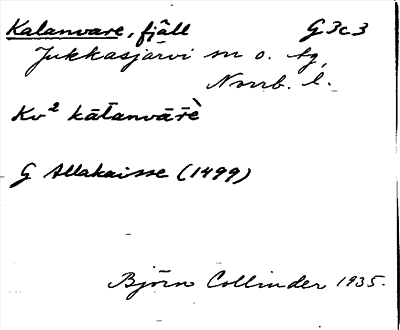 Kalanvare, fjäll G3c3
Jukkasjärvi sn o. tg,
Norrb. l.
Kv² kātanvārè
G Allakaisse (1499)
Björn Collinder 1935.